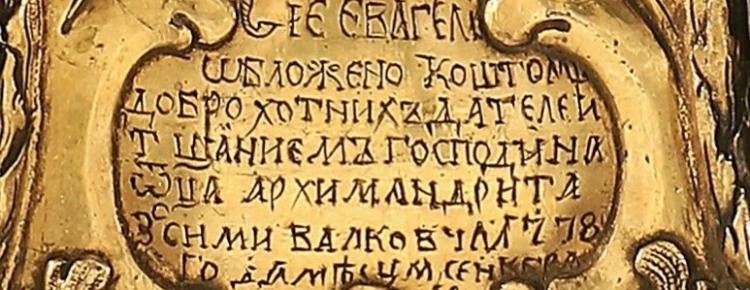 СІЕ ЕВАГЕЛІ
ѠБЛОЖЕНО КОШТОМЪ
ДОБРОХОТНИХЪ ДАТЕЛЕЙ
ТЩАНИЕМЪ ГОСПОДИНА
ѾЦА АРХИМАНДРИТА
ЗСИМИ ВАЛКОВЧА 1778
ГО